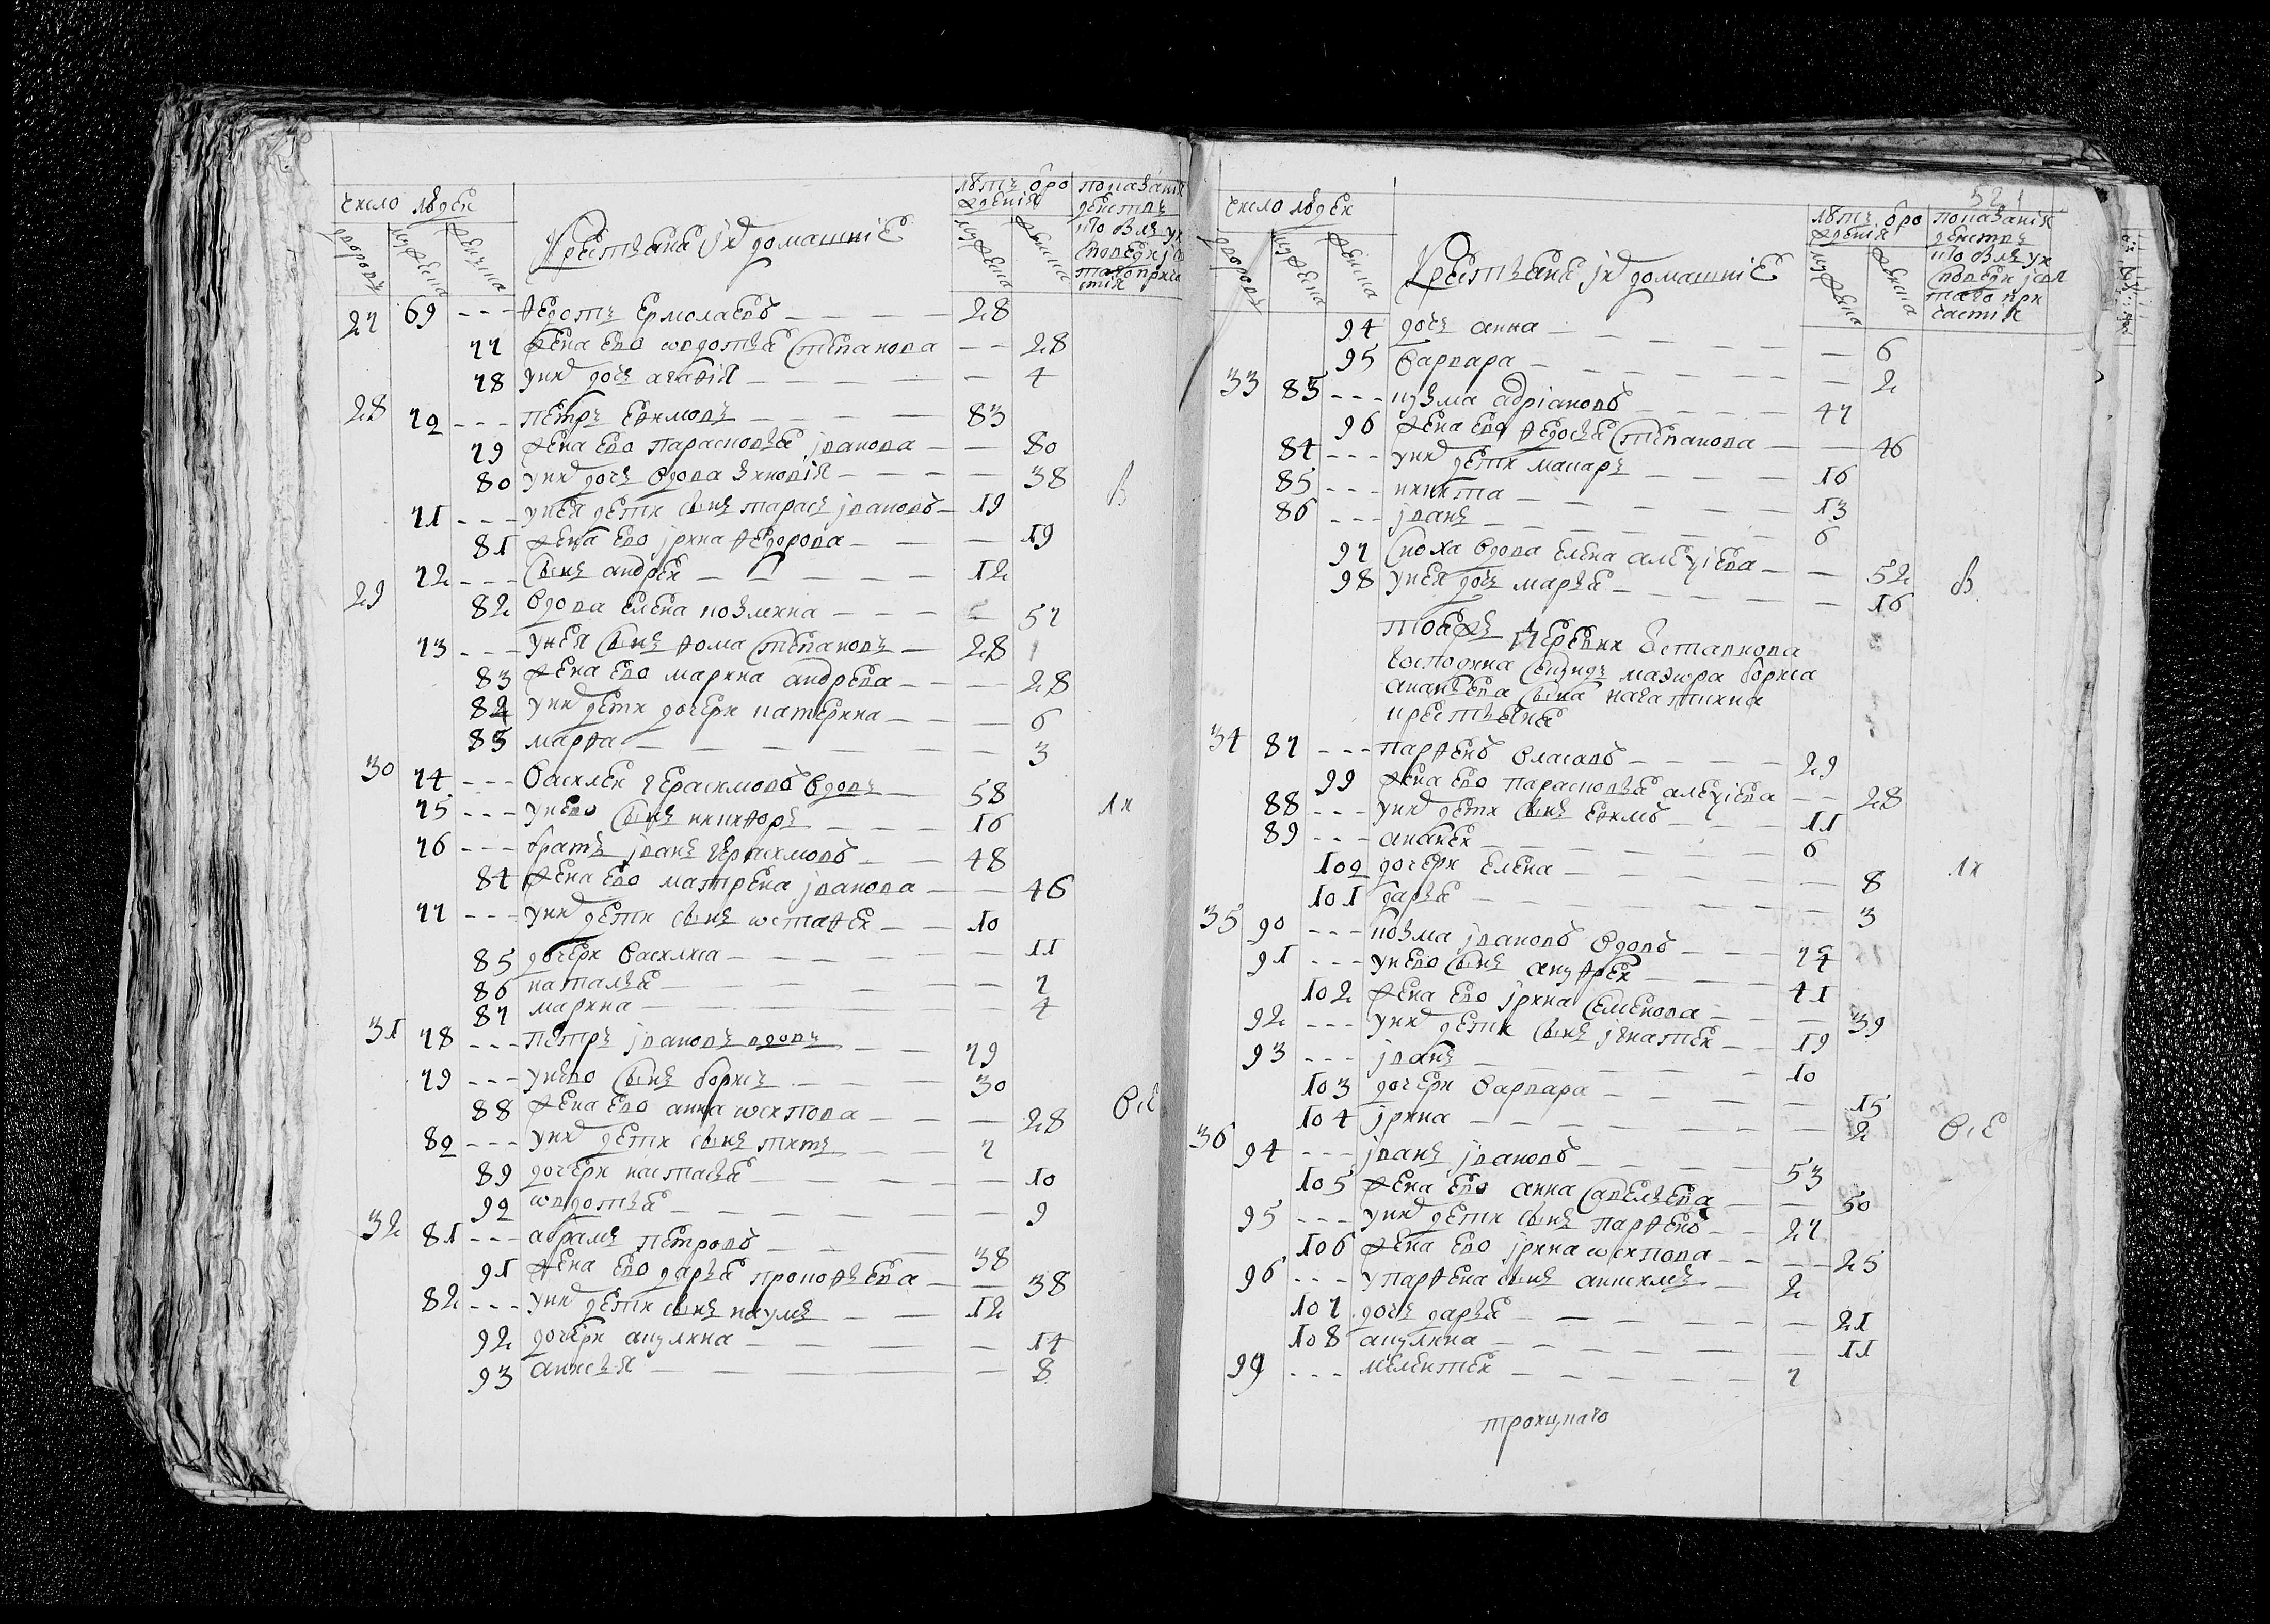 число людей
дворовъ
мужеска
женска
Крестьяне ïих домашнïе
лѣтъ от ро
жденïя
мужеска
женска
показанïя
действъ
кто был у и
споведи ï с
таго прича
стïя
27 69 --- Федотъ Ермолаевъ 28
77 жена ево Овдотья Степанова 28
78 у них дочь Агафïя 4
28 70 --- Петръ Ефимовъ 83
79 жена ево Парасковья Іванова 80
80 у них дочь вдова Зиновïя 38
71 --- у нея дети сынъ Тарасъ Івановъ 19
81 жена ево Ірина Федорова 19
72 --- сынъ Андрей 12
29 82 вдова Елена Козмина 57
73 --- у нея сынъ Фома Степановъ 28
83 жена ево Марина Андрева 28
84 у них дети дочери Катерина 6
85 Марфа 3
30 74 --- Василей Герасимовъ вдовъ 58
75 --- у нево сынъ Никифоръ 16
76 --- братъ Іванъ Герасимовъ 48
84 жена ево Матрена Іванова 46
77 --- у них дети сынъ Остафей 10
85 дочери Василиса 11
86 Наталья 7
87 Марина 4
31 78 --- Петръ Івановъ вдовъ 79
79 --- у нево сынъ Борисъ 30
88 жена ево Анна Осипова 28
80 --- у них дети сынъ Титъ 7
89 дочери Настасья 10
90 Овдотья 9
32 81 --- Абрамъ Петровъ 38
91 жена ево Дарья Прокофьева 38
82 --- у них дети сынъ Наумъ 12
92 дочери Акулина 14
93 Анисья 8
в
ли
все
521
число людей
дворовъ
мужеска
женска
Крестьяне ïих домашнïе
лѣтъ от ро
жденïя
мужеска
женска
показанïя
действъ
кто был у и
споведи ï свя
таго при
частïя
94 дочь Анна 6
95 Варвара 2
33 83 --- Кузма Адрïановъ 47
96 жена ево Федосья Степанова 46
84 --- у них дети Макаръ 16
85 --- Никита 13
86 --- Іванъ 6
97 сноха вдова Елена Алексïева 52
98 у нея дочь Марья 16
тоежъ деревни Естафкова
господина секундъ маэора Бориса
Ананьева сына
крестьяне
34 87 --- Парфенъ Власовъ 29
99 жена ево Парасковья Алексïева 28
88 --- у них дети сынъ Ефимъ 11
89 --- Ананей 6
100 дочери Елена 8
101 Дарья 3
35 90 --- Козма Івановъ вдовъ 74
91 --- у нево сынъ Ануфрей 41
102 жена ево Ірина Семенова 39
92 --- у них дети сынъ Ігнатей 19
93 --- Іванъ 10
103 дочери Варвара 15
104 Ірина 2
36 94 --- Іванъ Івановъ 53
105 жена ево Анна Савельева 50
95 --- у них дети сынъ Парфенъ 27
106 жена ево Ірина Осипова 25
96 --- у Парфена сынъ Анисимъ 2
107 дочь Дарья 21
108 Акулина 11
97 --- Мелентей 7
в
ли
все
троицкаго